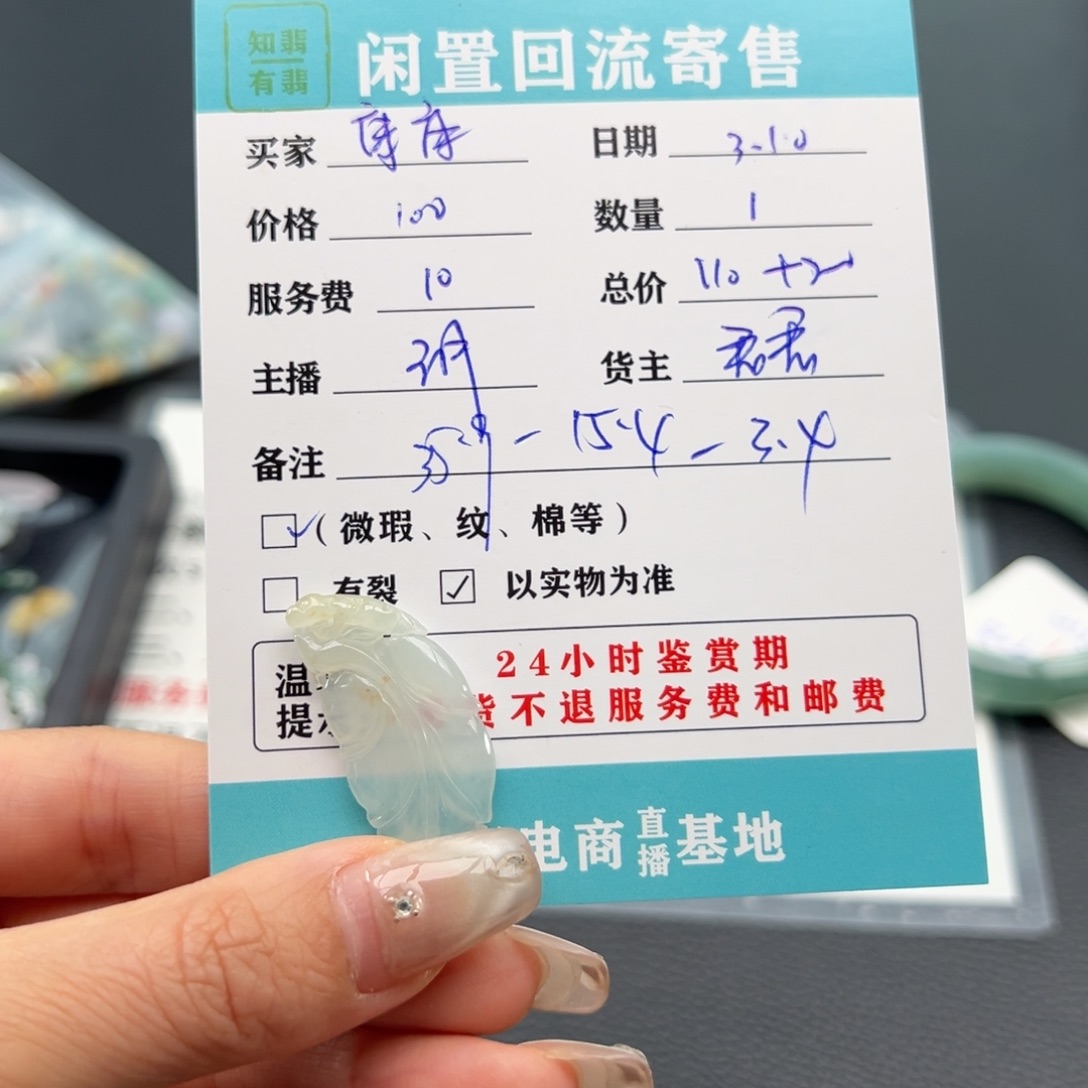 知翡
有翡
闲置回流寄售
买家 康康 日期 3.10
价格 100 数量 1
服务费 10 总价 110 +20
主播 货主 君君
备注 - 15.4 - 3.4
✓(微瑕、纹、棉等)
有裂 ☑ 以实物为准
温 24小时鉴赏期
提 货不退服务费和邮费
电商直播基地